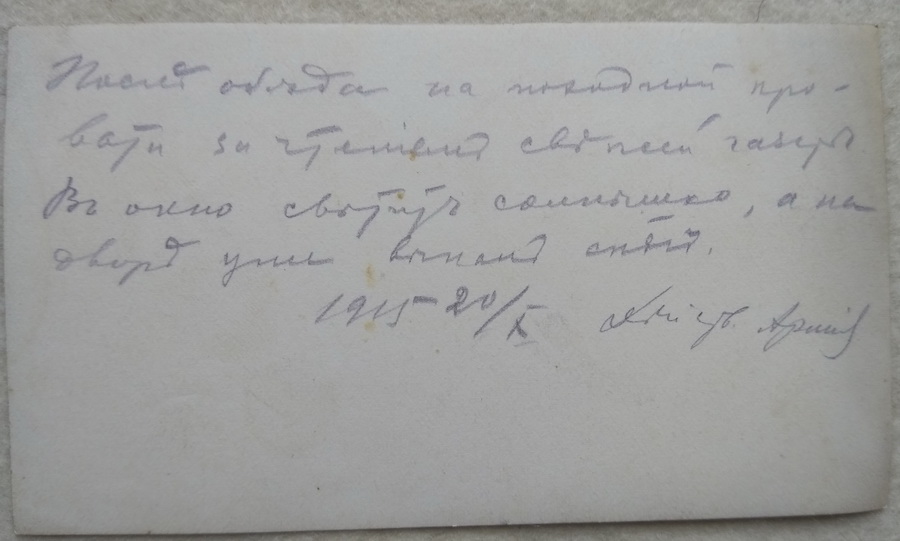 Послѣ обѣда на походной кро-
вати за чтеніемъ свѣжей газеты
Въ окно свѣтитъ солнышко, а на
дворѣ уже выпалъ снѣгъ.
1915 20/X Дѣйств. Армія